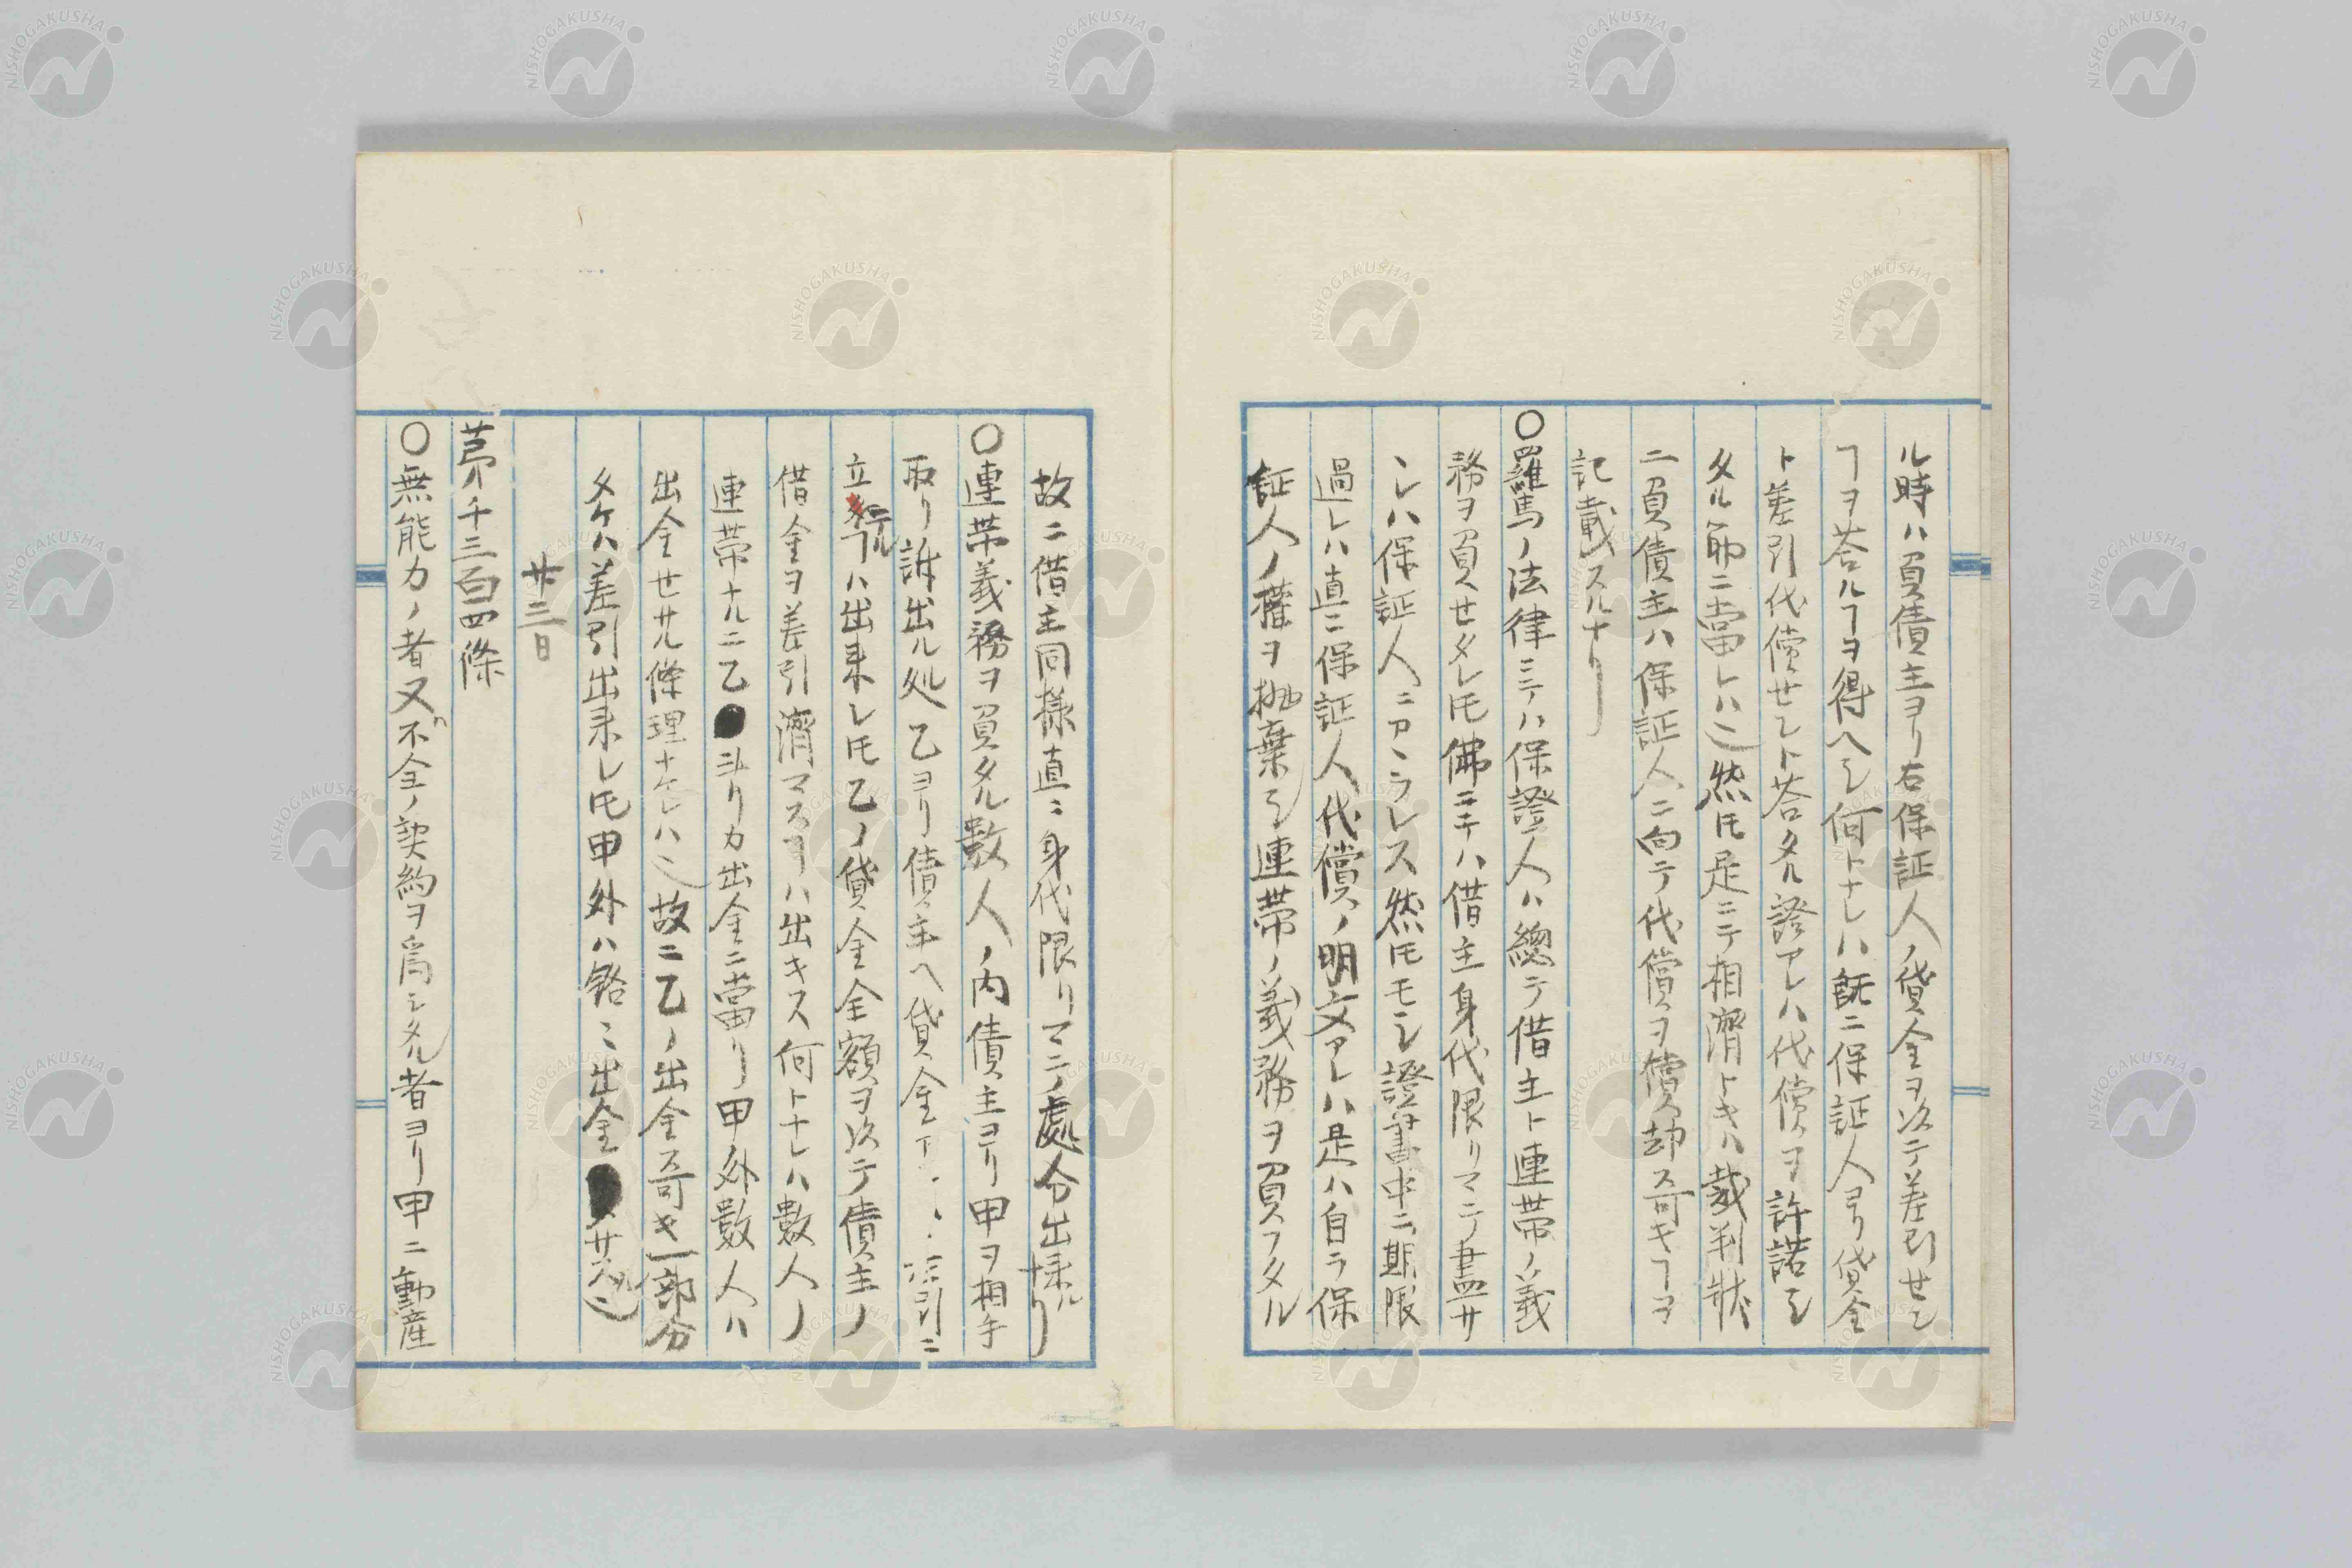 ル時ハ負債主ヨリ右保証人ノ貸金ヲ以テ差引セシ
ヿヲ答ルヿヲ得ヘシ何トナレハ既ニ保証人ヨリ貸金
ト差引代償セシト答タル證アレハ代償ヲ許諾シ
タル節ニ當レハ也然𪜈是ニテ相濟トキハ裁判狀
ニ負債主ハ保証人ニ向テ代償ヲ償却ス可キヿヲ
記載スルナリ
〇羅馬ノ法律ニテハ保證人ハ總テ借主ト連帶ノ義
務ヲ負セタレ𪜈佛ニテハ借主身代限リマテ盡サ
レハ保証人ニカヽラレス然𪜈モシ證書中ニ期限
過レハ直ニ保証人代償ノ明文アレハ是ハ自ラ保
証人ノ權ヲ抛棄シ連帶ノ義務ヲ負フタル
故ニ借主同樣直ニ身代限リマテノ處分出來ルナリ
〇連帶義務ヲ負タル數人ノ内債主ヨリ甲ヲ相手
取リ訴出ル処乙ヨリ債主ヘ貸金 引ニ
立行ルヿハ出來レ𪜈乙ノ貸金全額ヲ以テ債主ノ
借金ヲ差引濟マスヿハ出キス何トナレハ數人ノ
連帶ナルニ乙斗リカ出金ニ當リ甲外數人ハ
出金セサル條理ナケレハ也故ニ乙ノ出金ス可キ一部分
タケハ差引出來レ𪜈甲外ハ各ニ出金
廿三日
第千三百四條
〇無能力ノ者又不全ノ契約ヲ爲シタル者ヨリ甲ニ動産
NISHOGAKUSHA